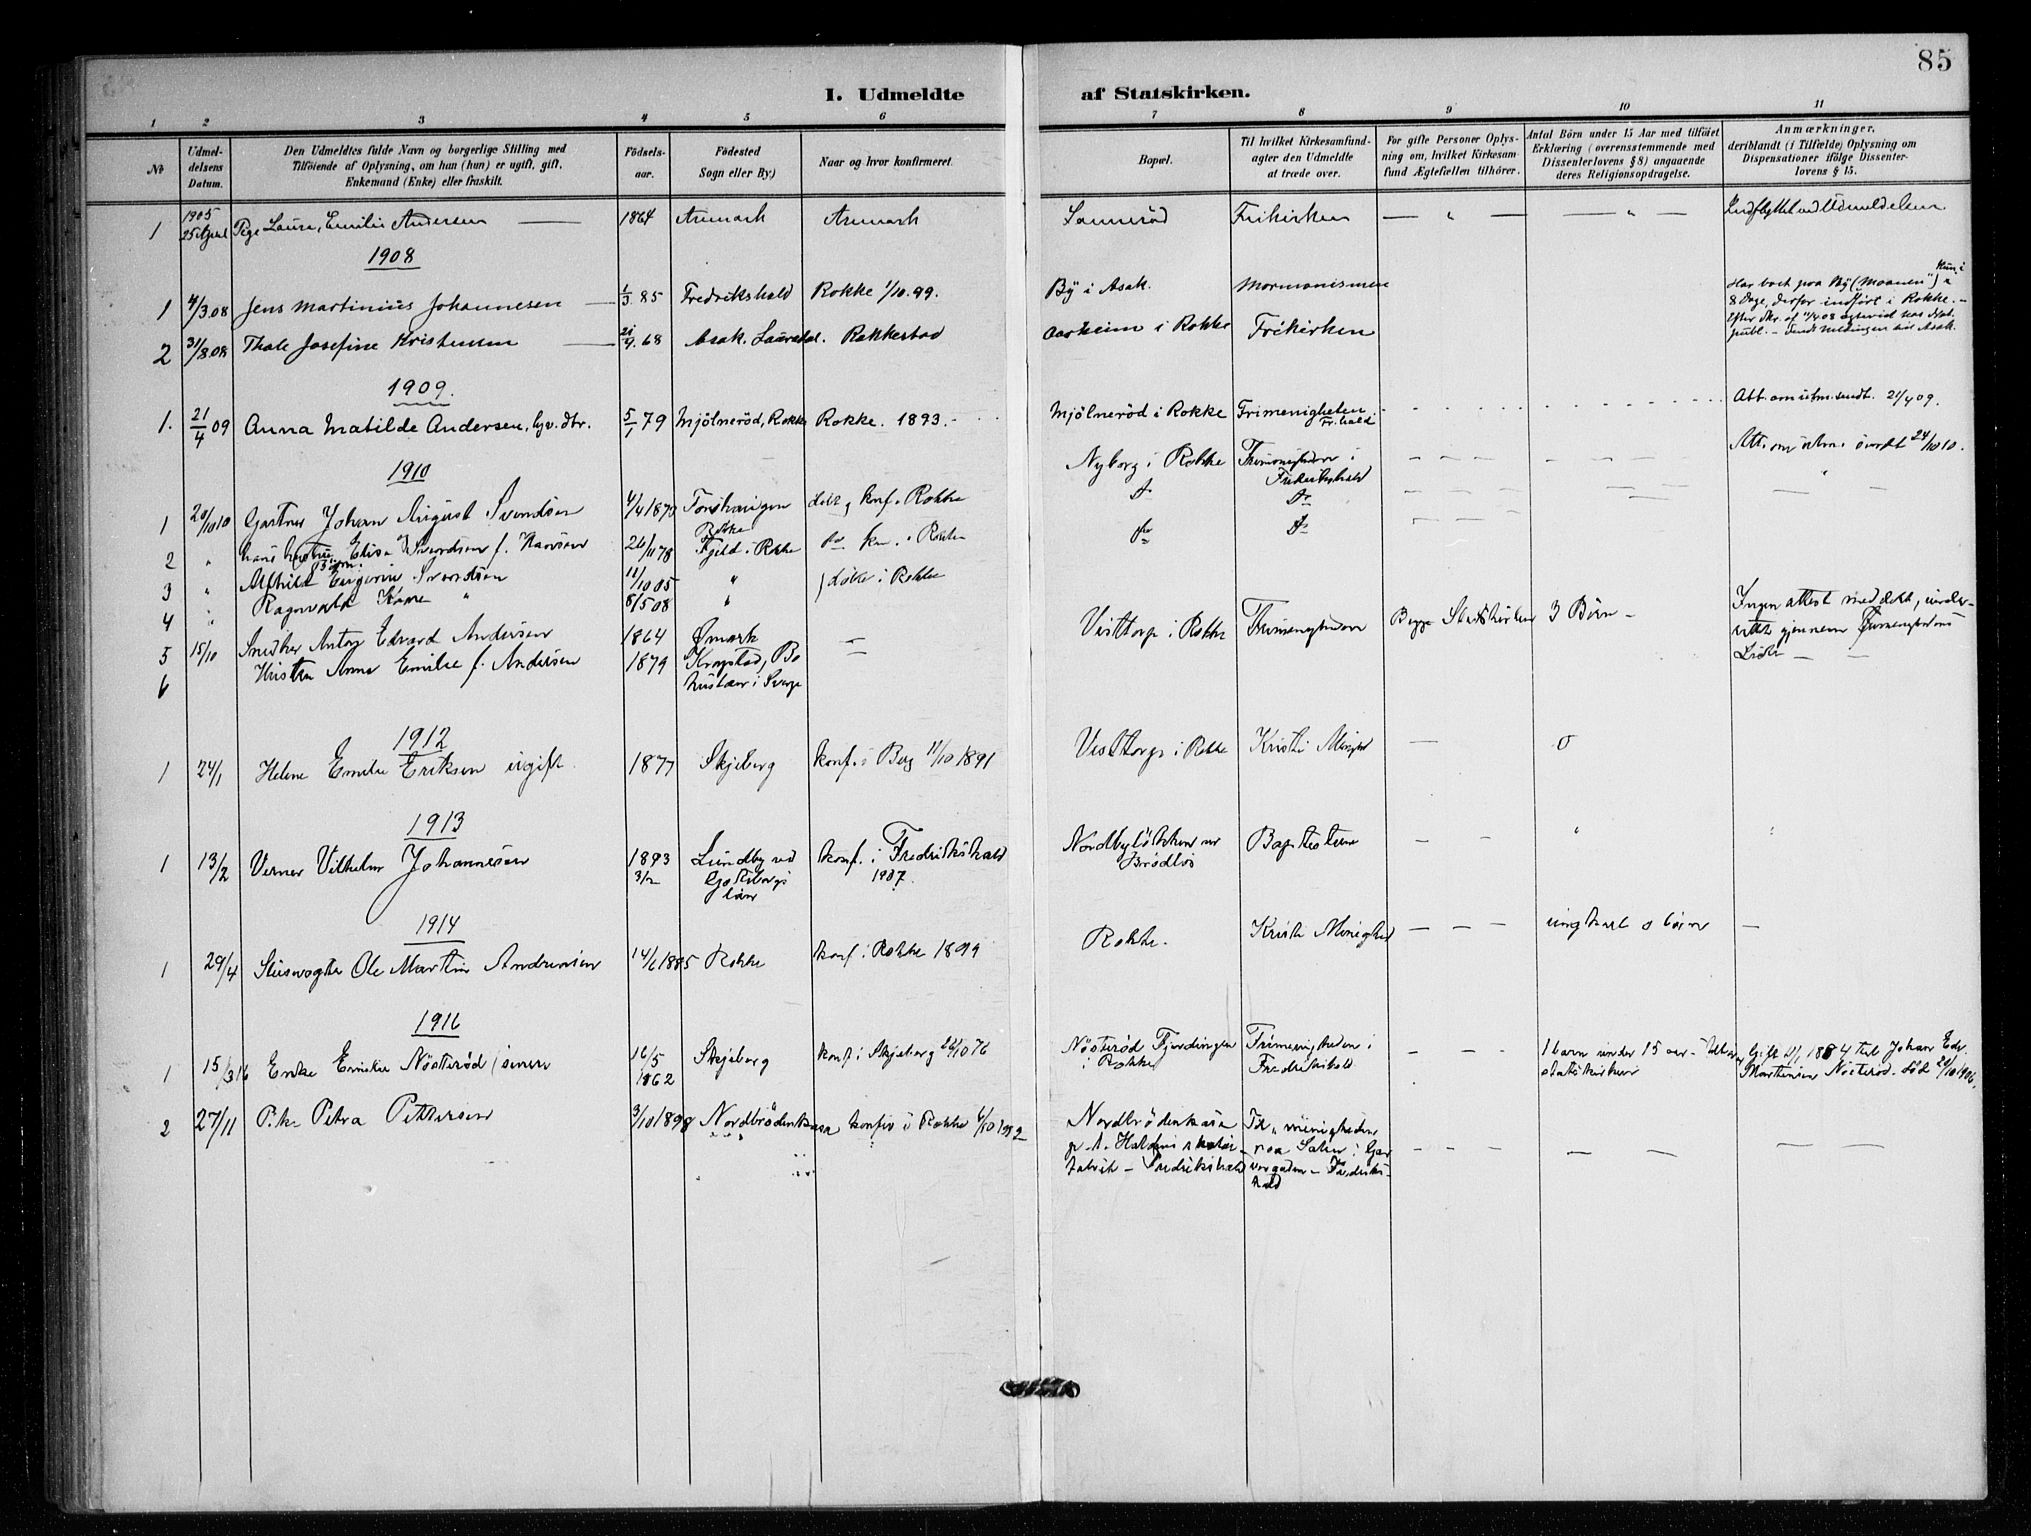 85
I. Udmeldte af Statskirken.
1 2 3 4 5 6 7 8 9 10 11
№
Udmel-
delsens
Datum.
Den Udmeldtes fulde Navn og borgerlige Stilling med
Tilføiende af Oplysning, om han (hun) er ugift, gift,
Enkemand (Enke) eller fraskilt.
Fødsels-
aar.
Fødested
Sogn eller By)
Naar og hvor konfirmeret.
Bopæl.
Til hvilket Kirkesamfund-
agter den Udmeldte
at træde over.
For gifte Personer Oplys-
ning om, hvilket Kirkesam-
fund Ægtefællen tilhører.
Antal Børn under 15 Aar med tilføiet
Erklæring (overensstemmende med
Dissenterlovens § 8) angaaende
deres Religionsopdragelse.
Anmærkninger,
deriblandt (i Tilfælde) Oplysning om
Dispensationer ifølge Dissenter-
lovens § 15.
1 1905 25 April Pige Laura Emilie Andersen — 1864 Aremark Aremark Sannerød Frikirken — " — — " — Indflyttet ved Udmeldelsen
1908
1 4/3.08 Jens Martinius Johannesen — 1/3.85 Fredrikshald Rokke 1/10.99. By i Asak. Mormonismen Har boet paa By (Moanen") i kun i
8 Dage, derfor indført i Rokke. —
2 31/8.08 Thale Josefine Kristensen — 21/9.68 Asak. Rakkestad Aarheim i Rokke Frikirken
1909.
1. 21/4 09 Anna Matilde Andersen, 5/1 79 Mjölneröd, Rokke Rokke. 1893. — Mjölneröd i Rokke Frimenigheten Fr.hald Att. om utm. sendt. 21/4 09.
1910
Nyborg i Rokke Frimenigheden i Fredrikshald Att. om utm. 24/10 10.
1 20/10 10 Gartner Johan August Svendsen 4/4 1870 Rokke døbt og konf. i Rokke Do Do
2 " hans hustru Elise Svendsen f. Hansen 26/11 78 Fjeld i Rokke do kon. i Rokke Do Do
Børn:
3 " Eugenie Svendsen 11/10 05 " døbt i Rokke
4 " Ragnvald Kaare " 8/5 08 "
5 15/10 Snedker Anton Edvard Andersen 1864 Ømark — Visttorp i Rokke Frimenigheden Begge Statskirken 3 Børn — Ingen attest meddelt, under-
rettet gjennem Frimenighedens
6 Hustru Anna Emilie f. Andersen 1879 Bo
huslæn i Sverge —
1912
1 24/1 Helene Emilie Eriksen ugift. 1877 Skjeberg konf. i Berg 11/10 1891 Visttorp i Rokke Kristi Menighed — 0
1913
1 13/2 Verner Vilhelm Johannesen 1893 3/2 Lundby ved
Gøteborgs
län konf. i Fredrikshald
1907. Nordbyløkken
Brødløs Baptisterne — — " "
1914
1 29/4 Slusevogter Ole Martin Andersen 14/6 1885 Rokke konf. i Rokke 1899 Rokke. Kristi Menighed — — — ungkarl 0 børn —
1916
1 15/3 16 Enke Emilie Nösteröd 16/5
1862 Skjeberg konf. i Skjeberg Nösteröd Fjerdingen
i Rokke Frimenigheden i
Fredrikshald — — — 1 barn under 15 aar —
statskirken Gift 1884 til Johan Edv.
Martinsen Nösteröd. död
2 27/11 P.ke Petra Pettersen 3/10 1898 Nordbrödenkasa konfir i Rokke Nordbrödenkasa
Haldens
fabrik — Fredrikshald menigheden
paa Salen i
— Fredriks-
hald — — — — — — —